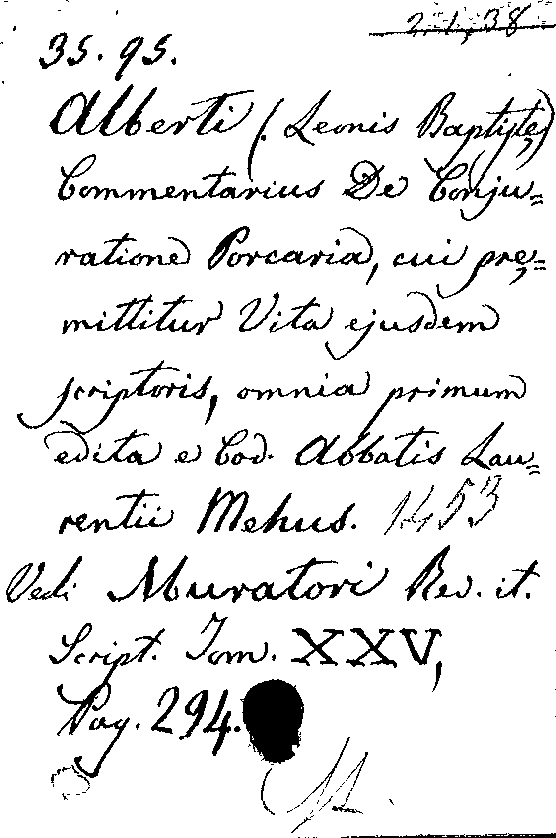 2,1,38
35.95.
Alberti (Leonis Baptistę)
Commentarius De Conju=
ratione Porcaria, cui prę=
mittitur Vita ejusdem
scriptoris, omnia primum
edita e Cod. Abbatis Lau=
rentii Mehus. 1453
Vedi Muratori Rer. it.
Script. Tom. XXV,
Pag. 294.